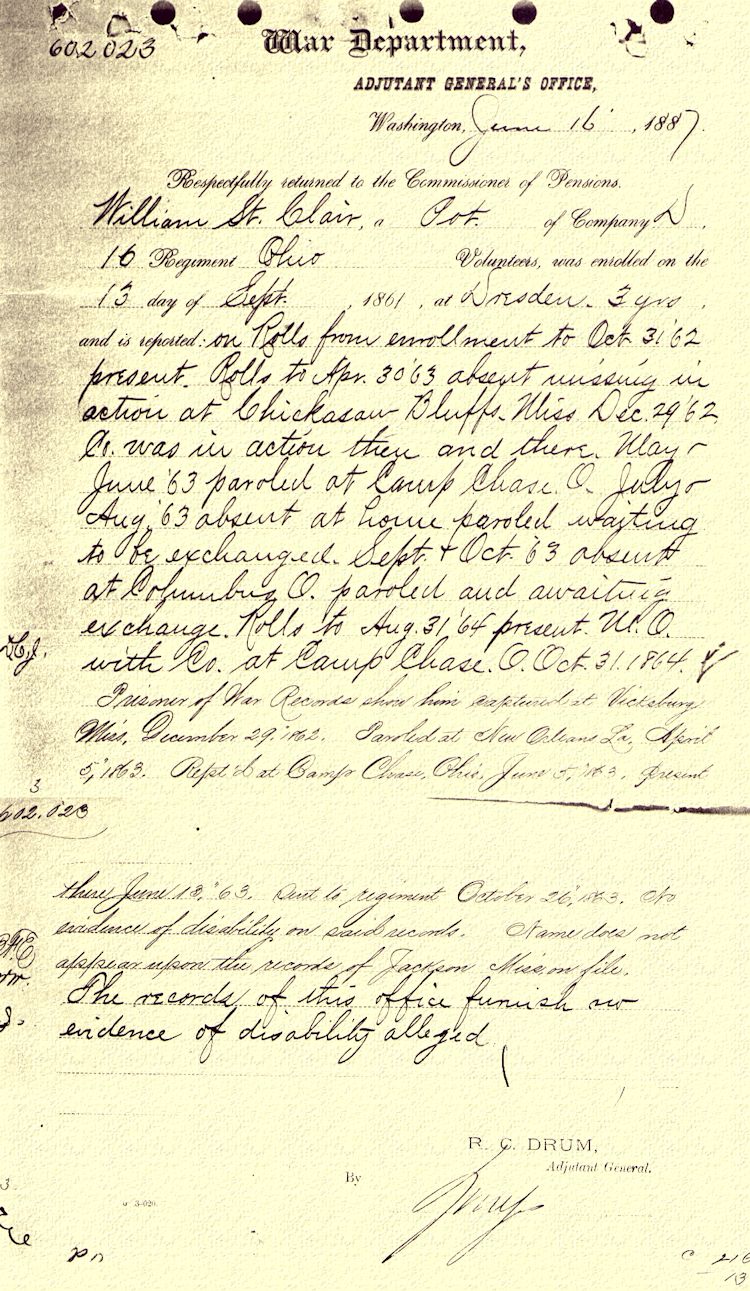 602023
War Department,
ADJUTANT GENERAL'S OFFICE,
Washington, June 16, 1887.
Respectfully returned to the Commissioner of Pensions.
William St. Clair, a Pvt. of Company D,
16 Regiment Ohio Volunteers, was enrolled on the
13 day of Sept., 1861, at Dresden. 3 yrs,
and is reported: on Rolls from enrollment to Oct 31 '62
present. Rolls to Apr. 30 '63 absent missing in
action at Chickasaw Bluffs. Miss Dec. 29 '62
Co. was in action then and there. May &
June '63 paroled at Camp Chase. O. July &
Aug. '63 absent at home paroled waiting
to be exchanged. Sept. & Oct. '63 absent
at Columbus O. paroled and awaiting
exchange. Rolls to Aug. 31 '64 present. M. O.
with Co. at Camp Chase. O. Oct. 31. 1864.
Prisoner of War Records show him captured at Vicksburg
Miss, December 29, 1862. Paroled at New Orleans La, April
5, 1863. Rept'd at Camp Chase, Ohio, June 5, 1863. present
3
602.023
there June 13, '63. Sent to regiment October 26, 1863. No
evidence of disability on said records. Name does not
appear upon the records of Jackson Miss, on file.
The records of this office furnish no
evidence of disability alleged
R. C. DRUM,
Adjutant General.
By
3-020